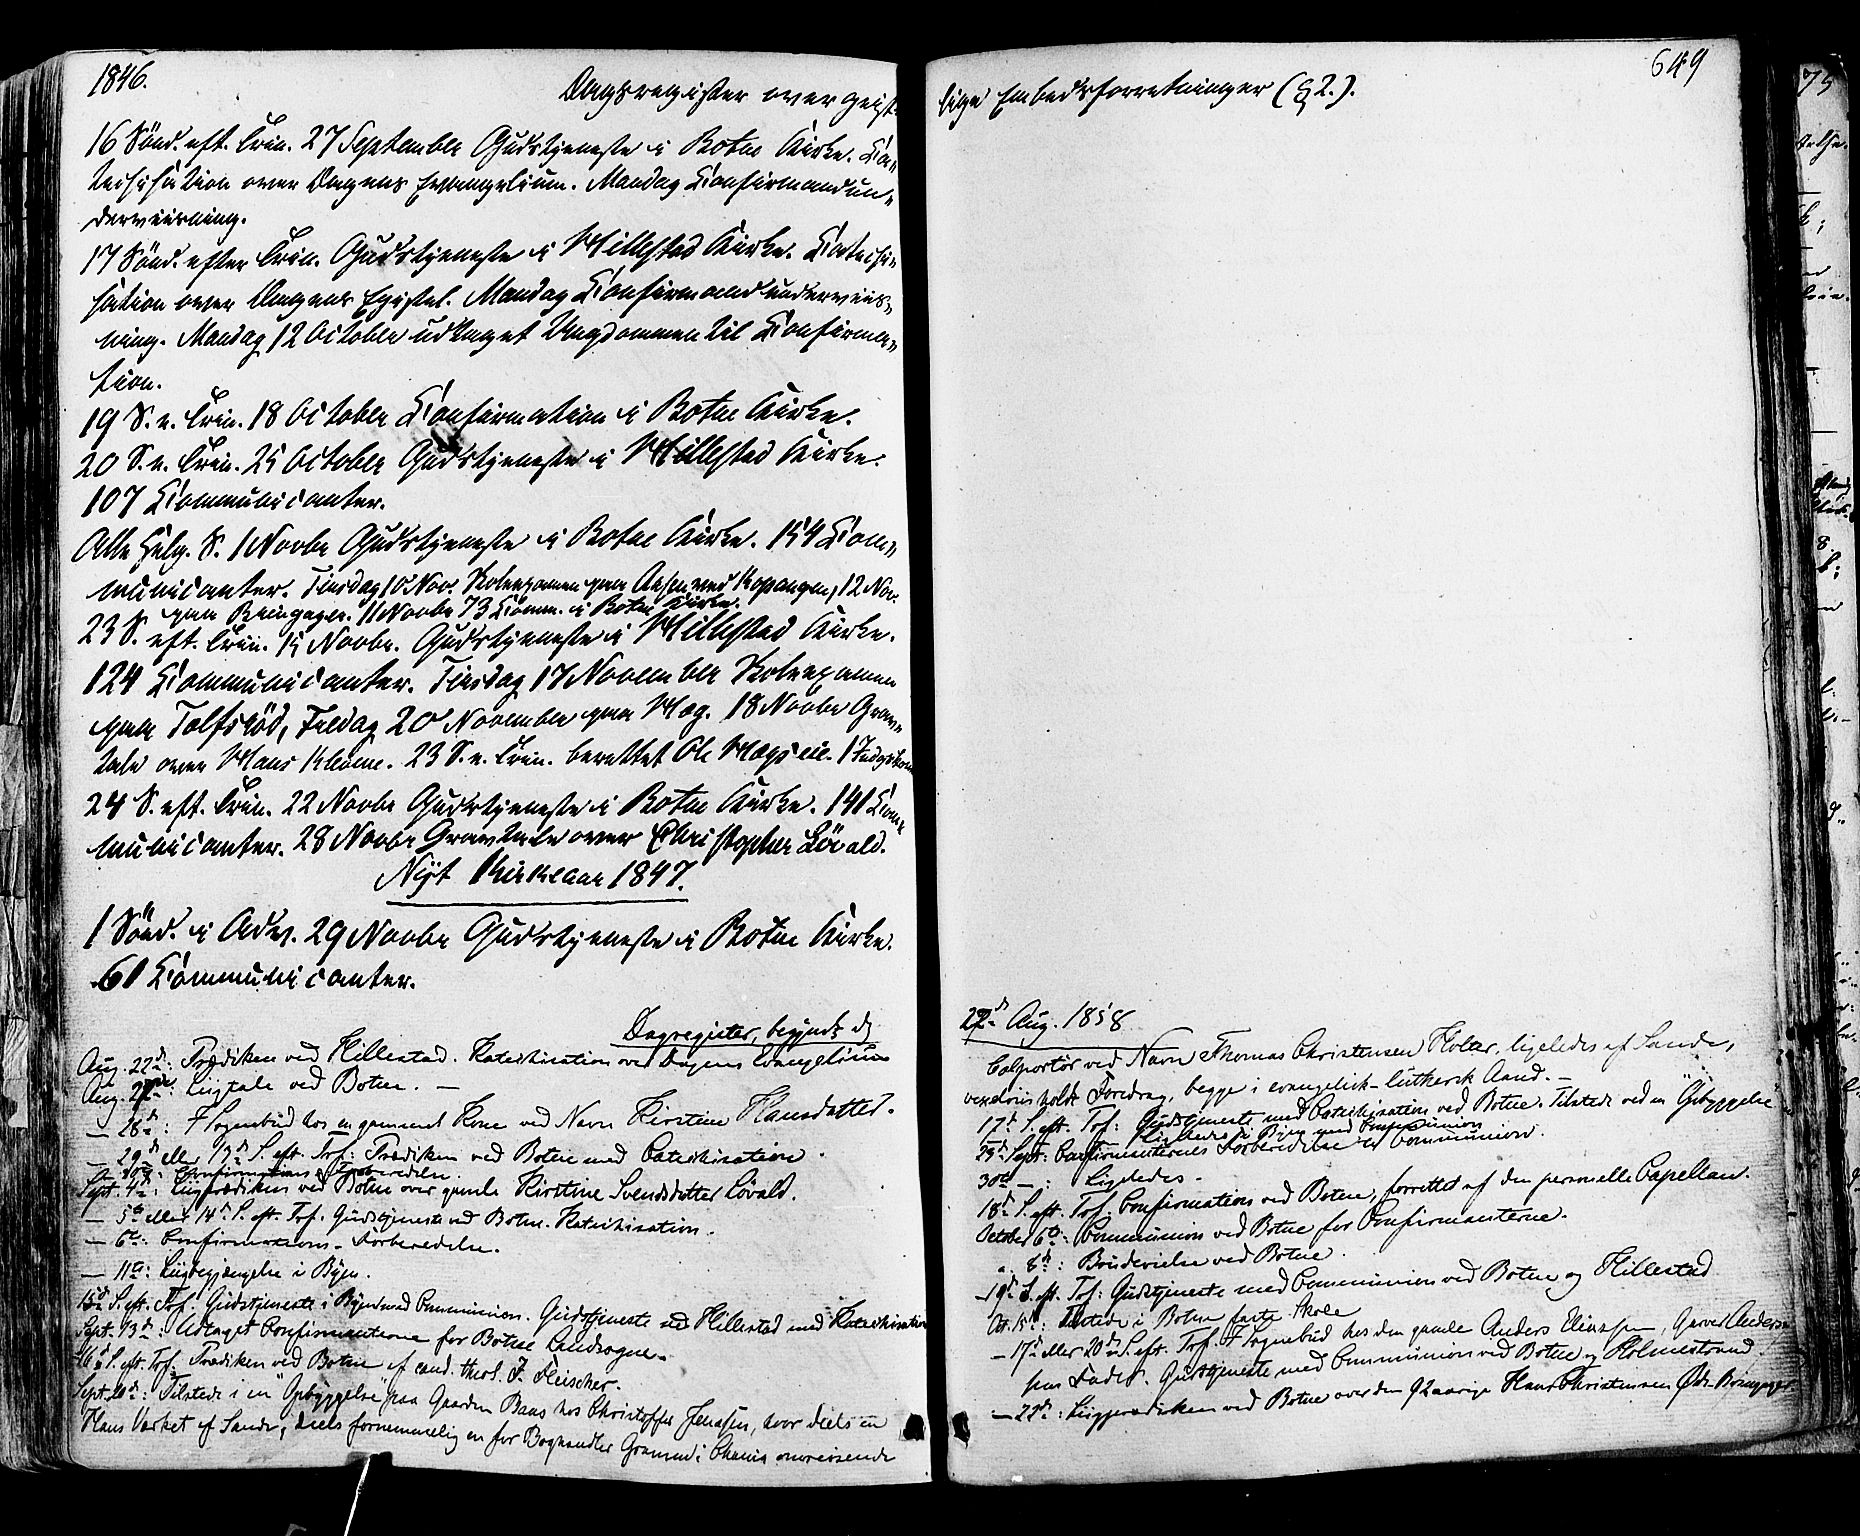 1846.
Dagsregister over geist-
16 Sönd. eft. Trin. 27 September Gudstjeneste i Botne Kirke. Ca-
techisation over Dagens Evangelium. Mandag Confirmandun-
derviisning.
17 Sönd. efter Trin. Gudstjeneste i Hillestad Kirke. Catechi-
sation over Dagens Epistel. Mandag Confirmandunderviis-
ning. Mandag 12 October udtaget Ungdommen til Confirma-
tion.
19 S. e. Trin. 18 October Confirmation i Botne Kirke.
20 S. e. Trin. 25 October Gudstjeneste i Hillestad Kirke.
107 Communicanter.
Alle Helg. S. 1 Novbr Gudstjeneste i Botne Kirke. 154 Com-
municanter. Tirsdag 10 Nov. Skoleexamen paa Aasen ved Kopangen, 12 Nov.
paa Bringager. 11 Novbr 73 Comm. i Botne Kirke.
23 S. eft. Trin. 15 Novbr. Gudstjeneste i Hillestad Kirke.
124 Communicanter. Tirsdag 17 November Skoleexamen
paa Tolfsröd, Fredag 20 November paa Hag. 18 Novbr Grav-
tale over Hans Kleve. 23 S. e. Trin. berettet Ole Hagseie.
24 S. eft. Trin. 22 Novbr Gudstjeneste i Botne Kirke. 141 Com-
municanter. 28 Novbr Gravtale over Christopher Lövald.
Nyt Kirkeaar 1847.
1 Sönd. i Adv. 29 Novbr Gudstjeneste i Botne Kirke.
61 Communicanter.
Dagregister, begyndt d
Aug. 22d: Prædiken ved Hillestad. Katechisation over Dagens Evangelium
Aug. 27de: Liigtale ved Botne. —
— 28d: I Sognebud hos en gammel Kone ved Navn Kirstine Hansdatter.
— 29d eller 13d S. eft. Tref: Prædiken ved Botne med Catechisation.
— 30d: Confirmations Forberedelse.
Sept. 4d: Liigprædiken ved Botne over gamle Kirstine Svendsdatter Løvald.
— 5te eller 14d S. eft. Tref. Gudstjeneste ved Botne. Katechisation.
— 6te: Confirmations-Forberedelse.
— 11te: Liigbegjængelse i Byen.
15d S. eft. Tref. Gudstjeneste i Byen med Communion. Gudstjeneste ved Hillestad med Katechisation
Sept. 13d: Udtaget Confirmanterne for Botne Landsogn.
16d S. eft. Tref. Prædiken ved Botne af cand. theol. J. Fleischer.
Sept. 20d: Tilstede i en "Opbyggelse" paa Gaarden Baas hos Christoffer Jensen, hvor deels en
Hans Værket af Sande, deels fornemmelig en for Boghandler Grøndahl i Chania omreisende
649
lige Embedsforretninger (§ 2.).
22d Aug. 1858
Colportør ved Navn Thomas Christensen Holter, ligeledes af Sande,
vexelviis holdt Foredrag, begge i evangelisk-luthersk Aand. —
17d S. eft. Tref: Gudstjeneste med Catechisation ved Botne. Tilstede ved en "Opbyggelse"
Ligeledes i Byen med Communion
23d Sept: Confirmanternes Forberedelse til Communion.
30te —: Ligeledes.
18d S. eft. Tref. Confirmation ved Botne, forrettet af den personelle Capellan.
October 6te: Communion ved Botne for Confirmanterne.
" 8d: Brudevielse ved Botne.
— 19d S. eft. Tref: Gudstjeneste med Communion ved Botne og Hillestad
Oct. 15d: Tilstede i Botne faste Skole
— 17d eller 20d S. eft. Tref. I Sognebud hos den gamle Anders
Fader. Gudstjeneste med Communion ved Botne og Holmestrand
— 22d: Liigprædiken ved Botne over den 92 aarige Hans Christensen Ødr. Bringager